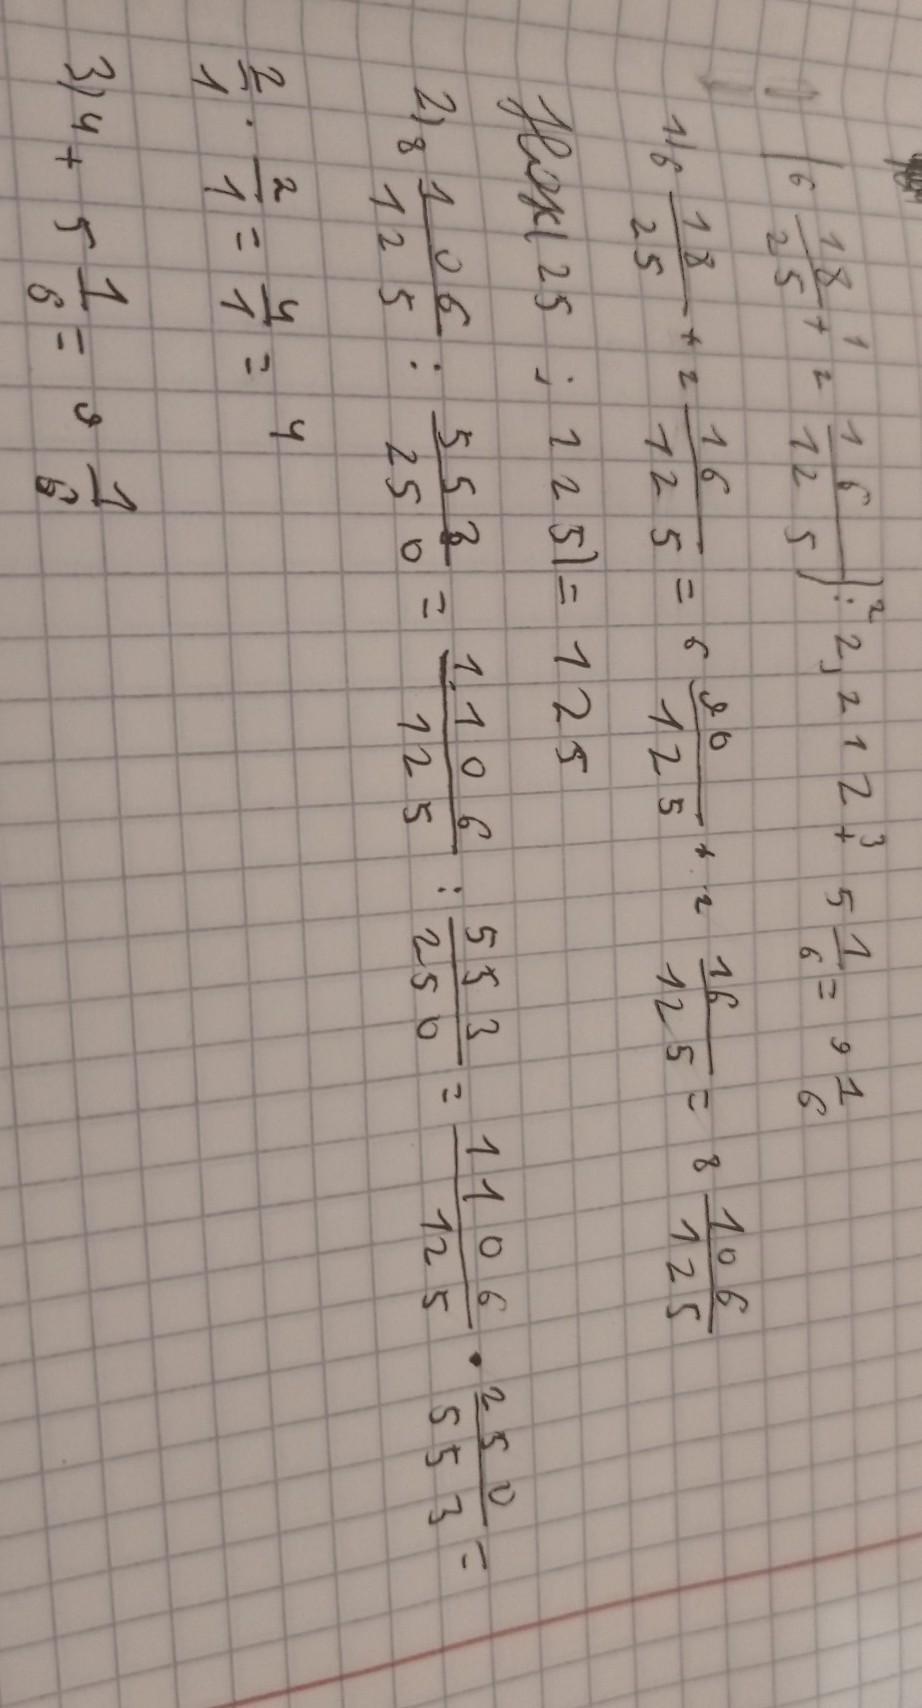 (6 18/25 +¹ 2 16/125) :² 2,212 +³ 5 1/6 = 9 1/6
1) 6 18/25 + 2 16/125 = 6 90/125 + 2 16/125 = 8 106/125
НОК(25 ; 125) = 125
2) 8 106/125 : 553/250 = 1106/125 : 553/250 = 1106/125 · 250/553 =
2/1 · 2/1 = 4/1 = 4
3) 4 + 5 1/6 = 9 1/6